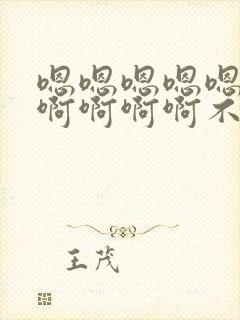 嗯嗯嗯嗯嗯
啊啊啊啊不
王茂